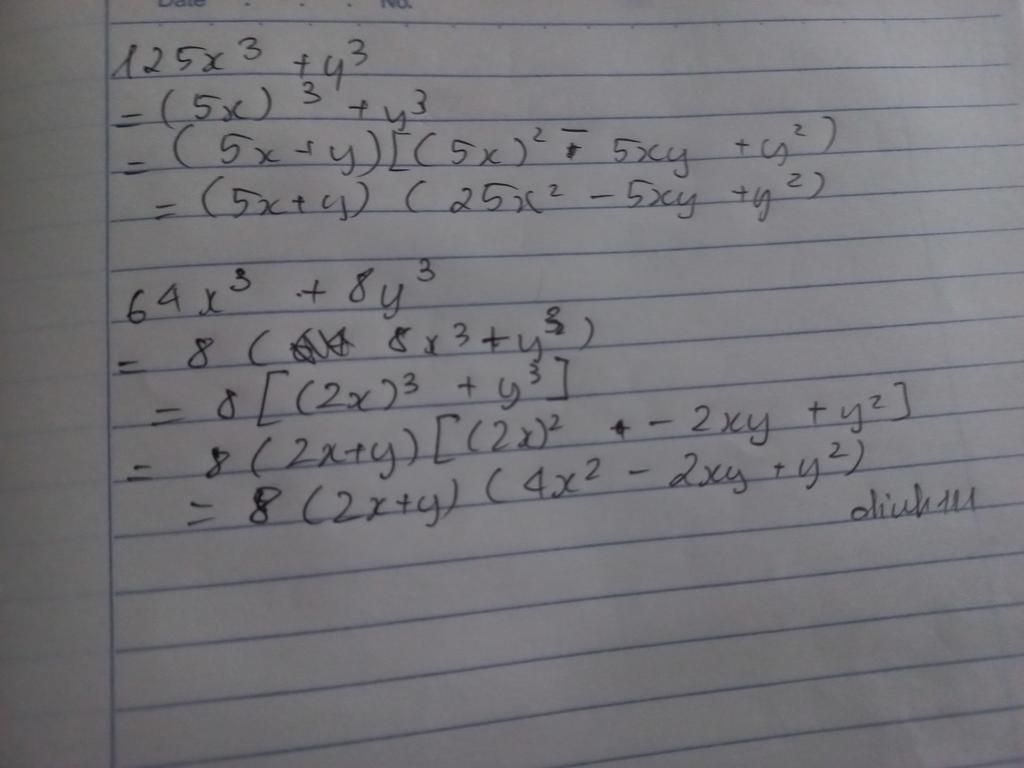 Date . . . No.
125x³ + y³
= (5x)³ + y³
= (5x + y)[(5x)² - 5xy + y²)
= (5x+y) (25x² - 5xy + y²)
64x³ + 8y³
= 8 ( 8x³ + y³)
= 8 [(2x)³ + y³]
= 8 (2x+y) [(2x)² - 2xy + y²]
= 8 (2x+y) (4x² - 2xy + y²)